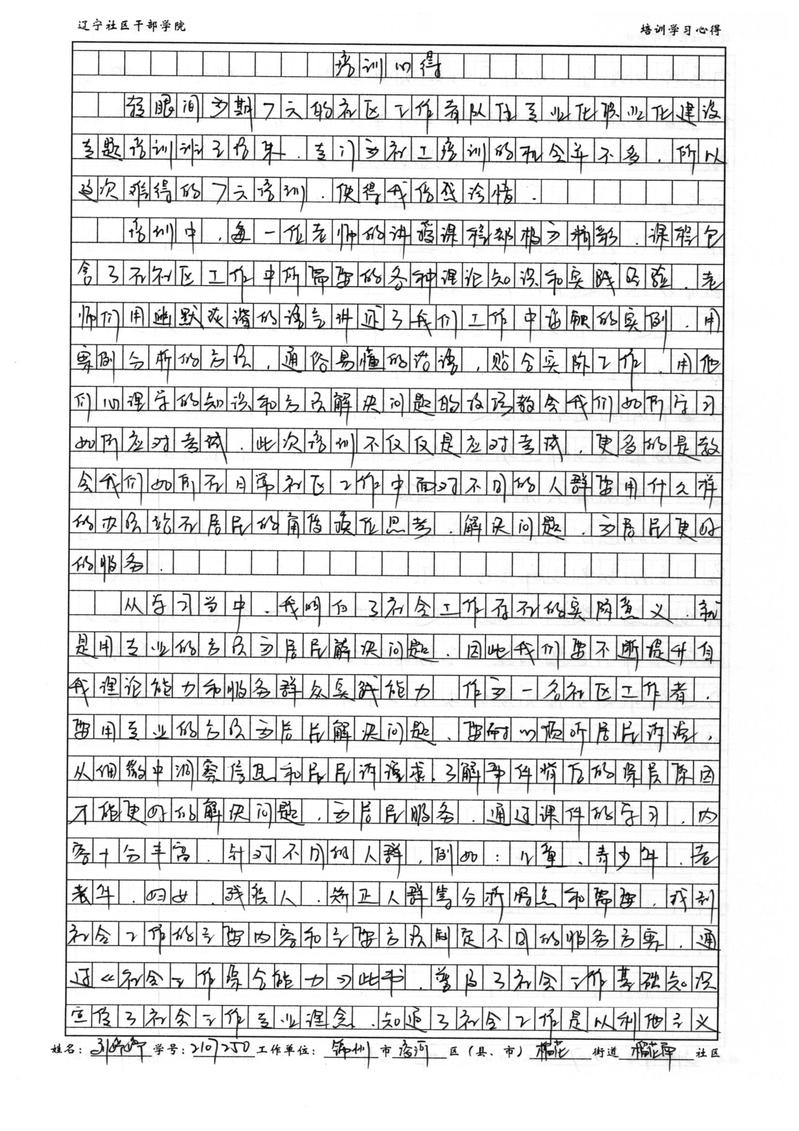 辽宁社区干部学院 培训学习心得
培训心得
转眼间为期7天的社区工作者队伍专业化职业化建设
专题培训班已结束。专门为社工培训的机会并不多,所以
这次难得的7天培训,使得我倍感珍惜。
培训中,每一位老师的讲授课程都极为精彩,课程包
含了在社区工作中所需要的各种理论知识和实践经验,老
师们用幽默诙谐的语言讲述了我们工作中接触的实例,用
案例分析的方法,通俗易懂的话语,贴合实际工作,用他
们心理学的知识和方法解决问题的技巧教会我们如何学习
如何应对考试。此次培训不仅仅是应对考试,更多的是教
会我们如何在日常社区工作中面对不同的人群要用什么样
的办法站在居民的角度换位思考,解决问题,为居民更好
的服务。
从学习当中,我明白了社会工作存在的实际意义,就
是用专业的方法为居民解决问题,因此我们要不断提升自
我理论能力和服务群众实践能力,作为一名社区工作者,
要用专业的方法为居民解决问题,要耐心倾听居民诉说,
从细微中洞察信息和居民诉求,了解事件背后的深层原因
才能更好的解决问题,为居民服务。通过课件的学习,内
容十分丰富,针对不同的人群,例如:儿童、青少年、老
老年、妇女、残疾人、矫正人群等分析特点和需要,找到
社会工作的主要内容和主要方法制定不同的服务方案,通
过《社会工作综合能力》此书,普及了社会工作基础知识
宣传了社会工作专业理念,知道了社会工作是以利他主义
姓名: 学号:2107250 工作单位: 锦州 市 凌河 区(县、市) 榴花 街道 社区